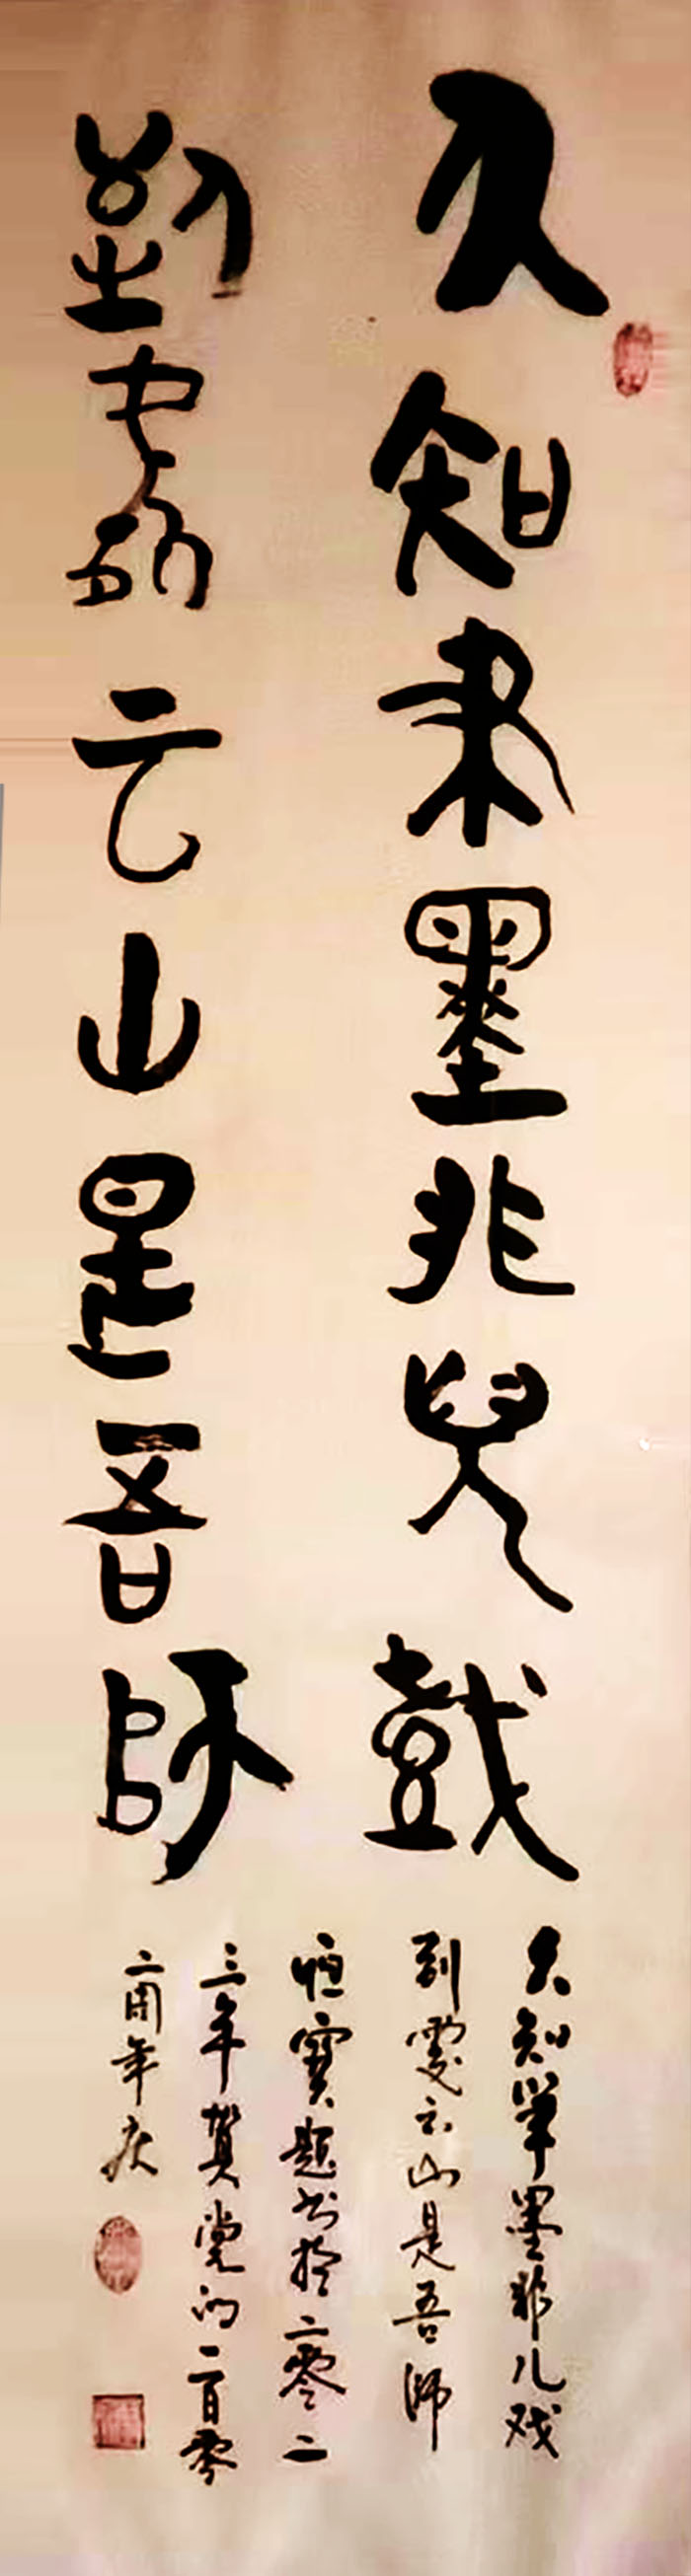 久知筆墨非兒戲
到處云山是吾師
久知筆墨非儿戏
到处云山是吾师
恒寶題书於二零二
三年賀党的一百零
二周年庆